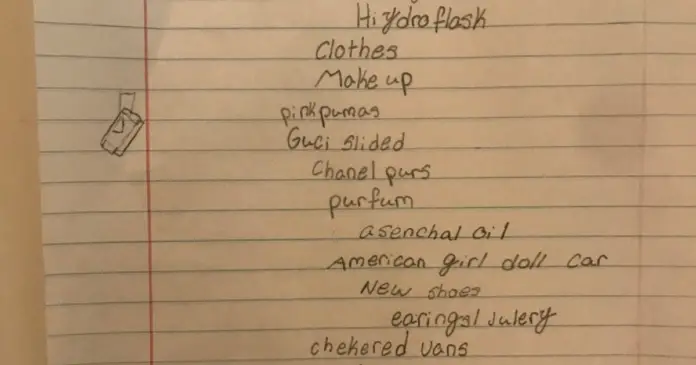 Hiydroflask
Clothes
Make up
pinkpumas
Guci slided
Chanel purs
purfum
asenchal oil
American girl doll car
New shoes
earings/ Julery
chekered vans